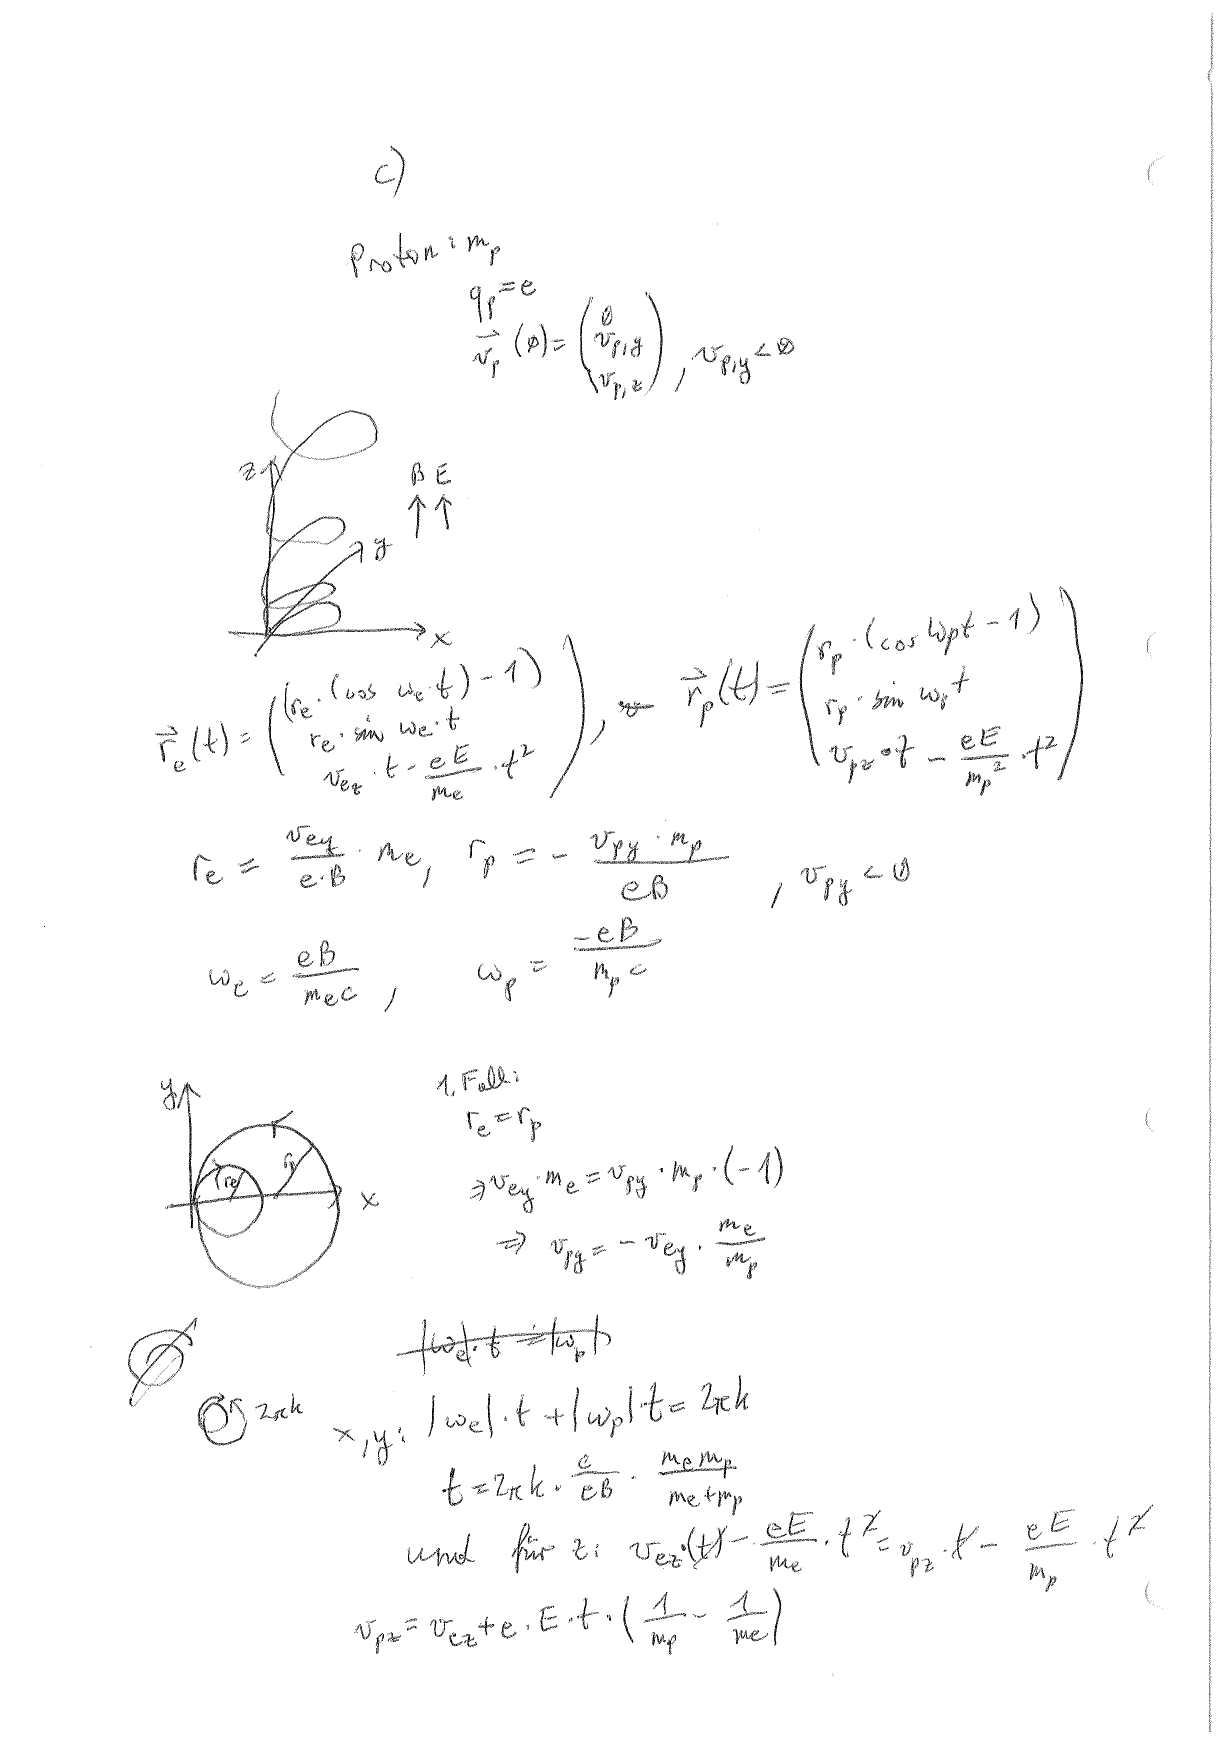 c)
Proton: m_p
q_p = e
\vec{v}_p (0) = \begin{pmatrix} 0 \\ v_{p,y} \\ v_{p,z} \end{pmatrix}, v_{p,y} < 0
z B E
y
x
\vec{r}_e(t) = \begin{pmatrix} (r_e \cdot (\cos \omega_e \cdot t) - 1) \\ r_e \cdot \sin \omega_e \cdot t \\ v_{ez} \cdot t - \frac{eE}{m_e} \cdot t^2 \end{pmatrix}, \vec{r}_p(t) = \begin{pmatrix} r_p \cdot (\cos \omega_p t - 1) \\ r_p \cdot \sin \omega_p t \\ v_{pz} \cdot t - \frac{eE}{m_p^2} \cdot t^2 \end{pmatrix}
r_e = \frac{v_{ey}}{e \cdot B} \cdot m_e, r_p = - \frac{v_{py} \cdot m_p}{eB}, v_{py} < 0
\omega_e = \frac{eB}{m_e c}, \omega_p = \frac{-eB}{m_p c}
y 1. Fall:
r_e = r_p
r_e r_p x
⇒ v_{ey} \cdot m_e = v_{py} \cdot m_p \cdot (-1)
⇒ v_{py} = - v_{ey} \cdot \frac{m_e}{m_p}
|\omega_e| \cdot t = |\omega_p|
2πk x,y: |\omega_e| \cdot t + |\omega_p| \cdot t = 2πk
t = 2πk \cdot \frac{c}{eB} \cdot \frac{m_e m_p}{m_e + m_p}
und für z: v_{ez} \cdot (t) - \frac{eE}{m_e} \cdot t^2 = v_{pz} \cdot t - \frac{eE}{m_p} \cdot t^2
v_{pz} = v_{ez} + e \cdot E \cdot t \cdot (\frac{1}{m_p} - \frac{1}{m_e})